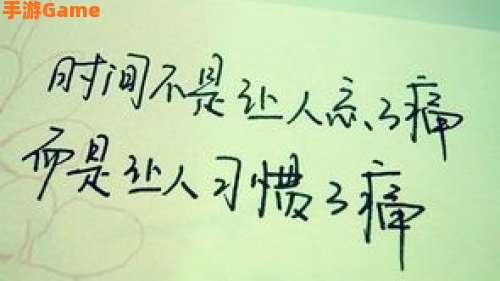 手游Game
时间不是让人忘了痛
而是让人习惯了痛